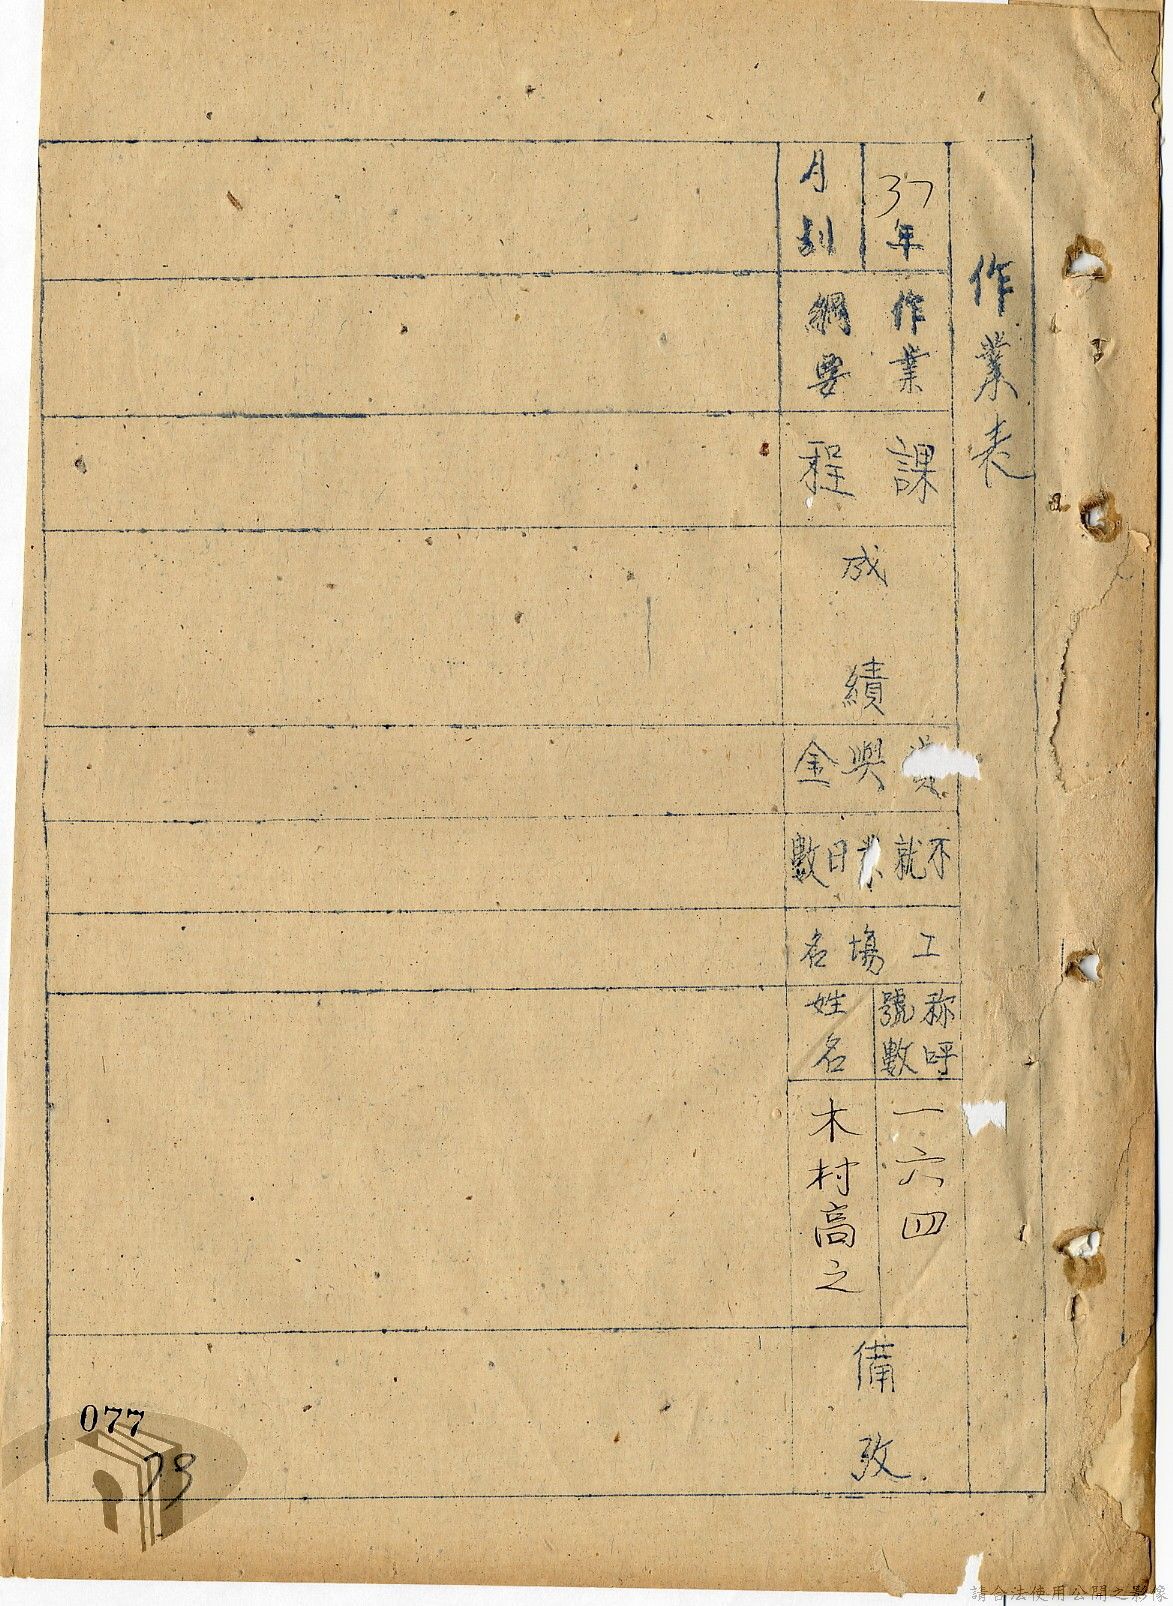 作業表
37年
月別
作業
綱要
課程
成績
與金
不就業日數
工場名
称呼
號數
姓名
一六四
木村高之
備攷
077
79
請合法使用公開之影像